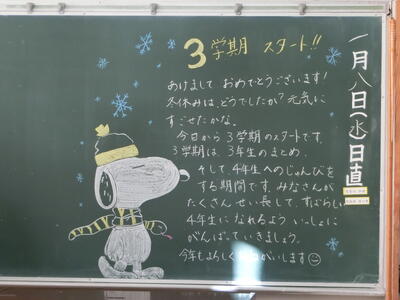 3学期 スタート!!
あけまして おめでとうございます!
冬休みは、どうでしたか?元気に
すごせたかな。
今日から3学期のスタートです。
3学期は、3年生のまとめ、
そして、4年生へのじゅんびを
する期間です。みなさんが
たくさん せい長して、すばらしい
4年生に なれるよう いっしょに
がんばって いきましょう。
今年もよろしく がいします
一月八日(水)日直